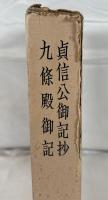 貞信公御記抄
九條殿御記